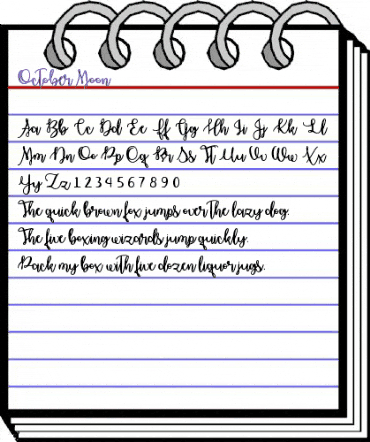 October Moon
Aa Bb Cc Dd Ee Ff Gg Hh Ii Jj Kk Ll
Mm Nn Oo Pp Qq Rr Ss Tt Uu Vv Ww Xx
Yy Zz 1 2 3 4 5 6 7 8 9 0
The quick brown fox jumps over the lazy dog.
The five boxing wizards jump quickly.
Pack my box with five dozen liquor jugs.